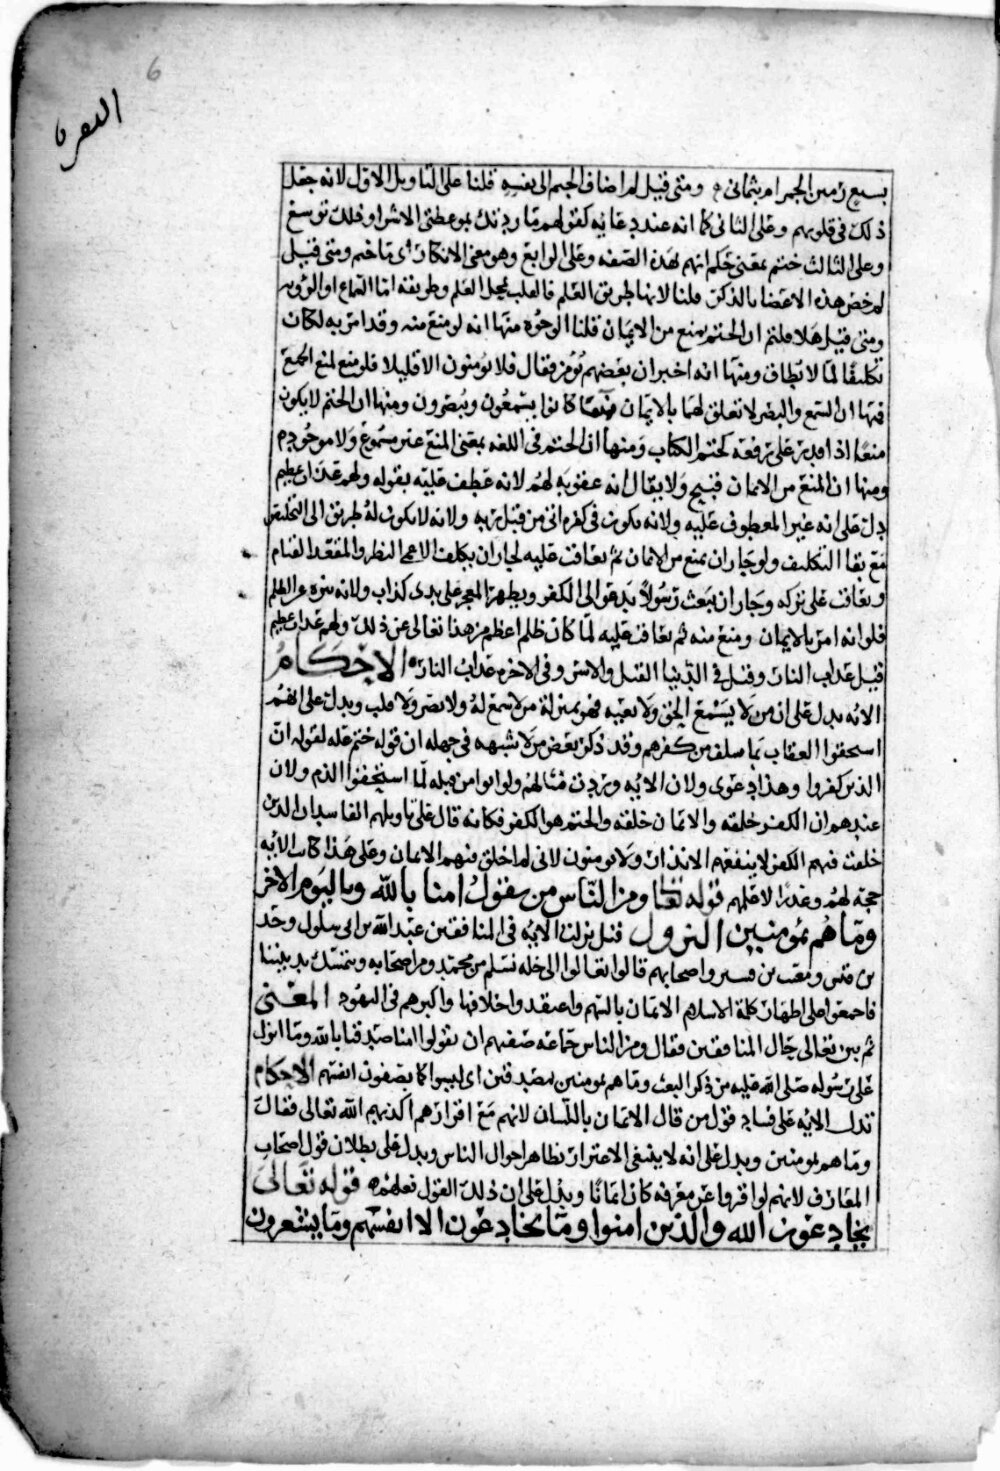 6
البقرة
بسبع رمين الجمر ام بثماني ومتى قيل لم اضاف الختم الى نفسه قلنا على التاويل الاول لانه جعل
ذلك في قلوبهم وعلى الثاني كما انه عند دعايه كقولهم ما زدتك بموعظتي الا شرا وذلك توسع
وعلى الثالث ختم بمعنى حكم انهم لهذه الصفه وعلى الرابع وهو معنى الانكار اي ما ختم ومتى قيل
لم خص هذه الاعضا بالذكر قلنا لانها طريق العلم فالقلب محل العلم وطريقه اما السماع او الرؤيه
ومتى قيل هلا قلتم ان الختم يمنع من الايمان قلنا الوجوه منها انه لو منع منه وقد امر به لكان
تكليفا لما لا يطاق ومنها انه اخبر ان بعضهم يؤمن فقال فلا يؤمنون الا قليلا فلو منع لمنع الجميع
فيها ان السمع والبصر لا تعلق لهما بالايمان كانوا يسمعون ويبصرون ومنها ان الختم لا يكون
منعا اذ اقدر على رفعه كختم الكتاب ومنها ان الختم في اللغه بمعنى المنع غير مسموع ولا موجود
ومنها ان المنع من الايمان قبيح ولا يقال انه عقوبه لهم لانه عطف عليه بقوله ولهم عذاب عظيم
دل على انه غير المعطوف عليه ولانه يكون في كفره اتي من قبل ربه ولانه لا يكون له طريق الى التخلص
مع بقا التكليف ولو جاز ان يمنع من الايمان ثم يعاقب عليه لجاز ان يكلف الاعمى النظر والمقعد القيام
ويعاقب على تركه وجاز ان يبعث رسولا يدعو الى الكفر ويظهر المعجز على يدي كذاب ولانه ينزه عن الظلم
فلو انه امر بالايمان ومنع منه ثم يعاقب عليه لما كان ظلم اعظم من هذا تعالى عن ذلك ولهم عذاب عظيم
قيل عذاب النار وقيل في الدنيا القتل والاسر وفي الاخره عذاب النار الاحكام
الايه يدل على ان من لا يسمع الحق ولا يعيه فهو بمنزلة من لا سمع له ولا بصر ولا قلب ويدل على انهم
استحقوا العقاب بما سلف من كفرهم وقد ذكر بعض من لا شبهه في جهله ان قوله ختم عله لقوله ان
الذين كفروا وهذا دعوى ولان الايه وردت ذما لهم ولو اتوا من قبله لما استحقوا الذم ولان
عندهم ان الكفر خلقه والايمان خلقه والختم هو الكفر فكانه قال على تاويلهم الفاسد ان الذين
خلقت فيهم الكفر لا ينفعهم الانذار ولا يومنون لاني لم اخلق فيهم الايمان وعلى هذا كانت الايه
حجة لهم وعذرا لا عليهم قوله تعالى ومن الناس من يقول امنا بالله وباليوم الاخر
وما هم بمومنين النزول قيل نزلت الايه في المنافقين عبد الله بن ابي سلول وجد
بن قيس ومعتب بن قشير واصحابهم قالوا تعالوا الى خله نسلم من محمد ومن اصحابه ونتمسك بديننا
فاجمعوا على اظهار كلمة الاسلام الايمان بالسنتهم واعتقدوا خلافها واكثرهم في اليهود المعنى
ثم بين تعالى حال المنافقين فقال ومن الناس جماعه صفتهم ان يقولوا امنا صدقنا بالله وما انزل
على رسوله صلى الله عليه من ذكر البعث وما هم بمومنين بمصدقين اي ليسوا كما يصفون انفسهم الاحكام
تدل الايه على فساد قول من قال الايمان باللسان لانهم مع اقرارهم اكذبهم الله تعالى فقال
وما هم بمومنين ويدل على انه لا ينبغي الاغترار بظاهر احوال الناس ويدل على بطلان قول اصحاب
المعارف لانهم لو اقروا عن معرفه كان ايمانا ويدل على ان ذلك القول فعلهم قوله تعالى
يخادعون الله والذين امنوا وما يخادعون الا انفسهم وما يشعرون